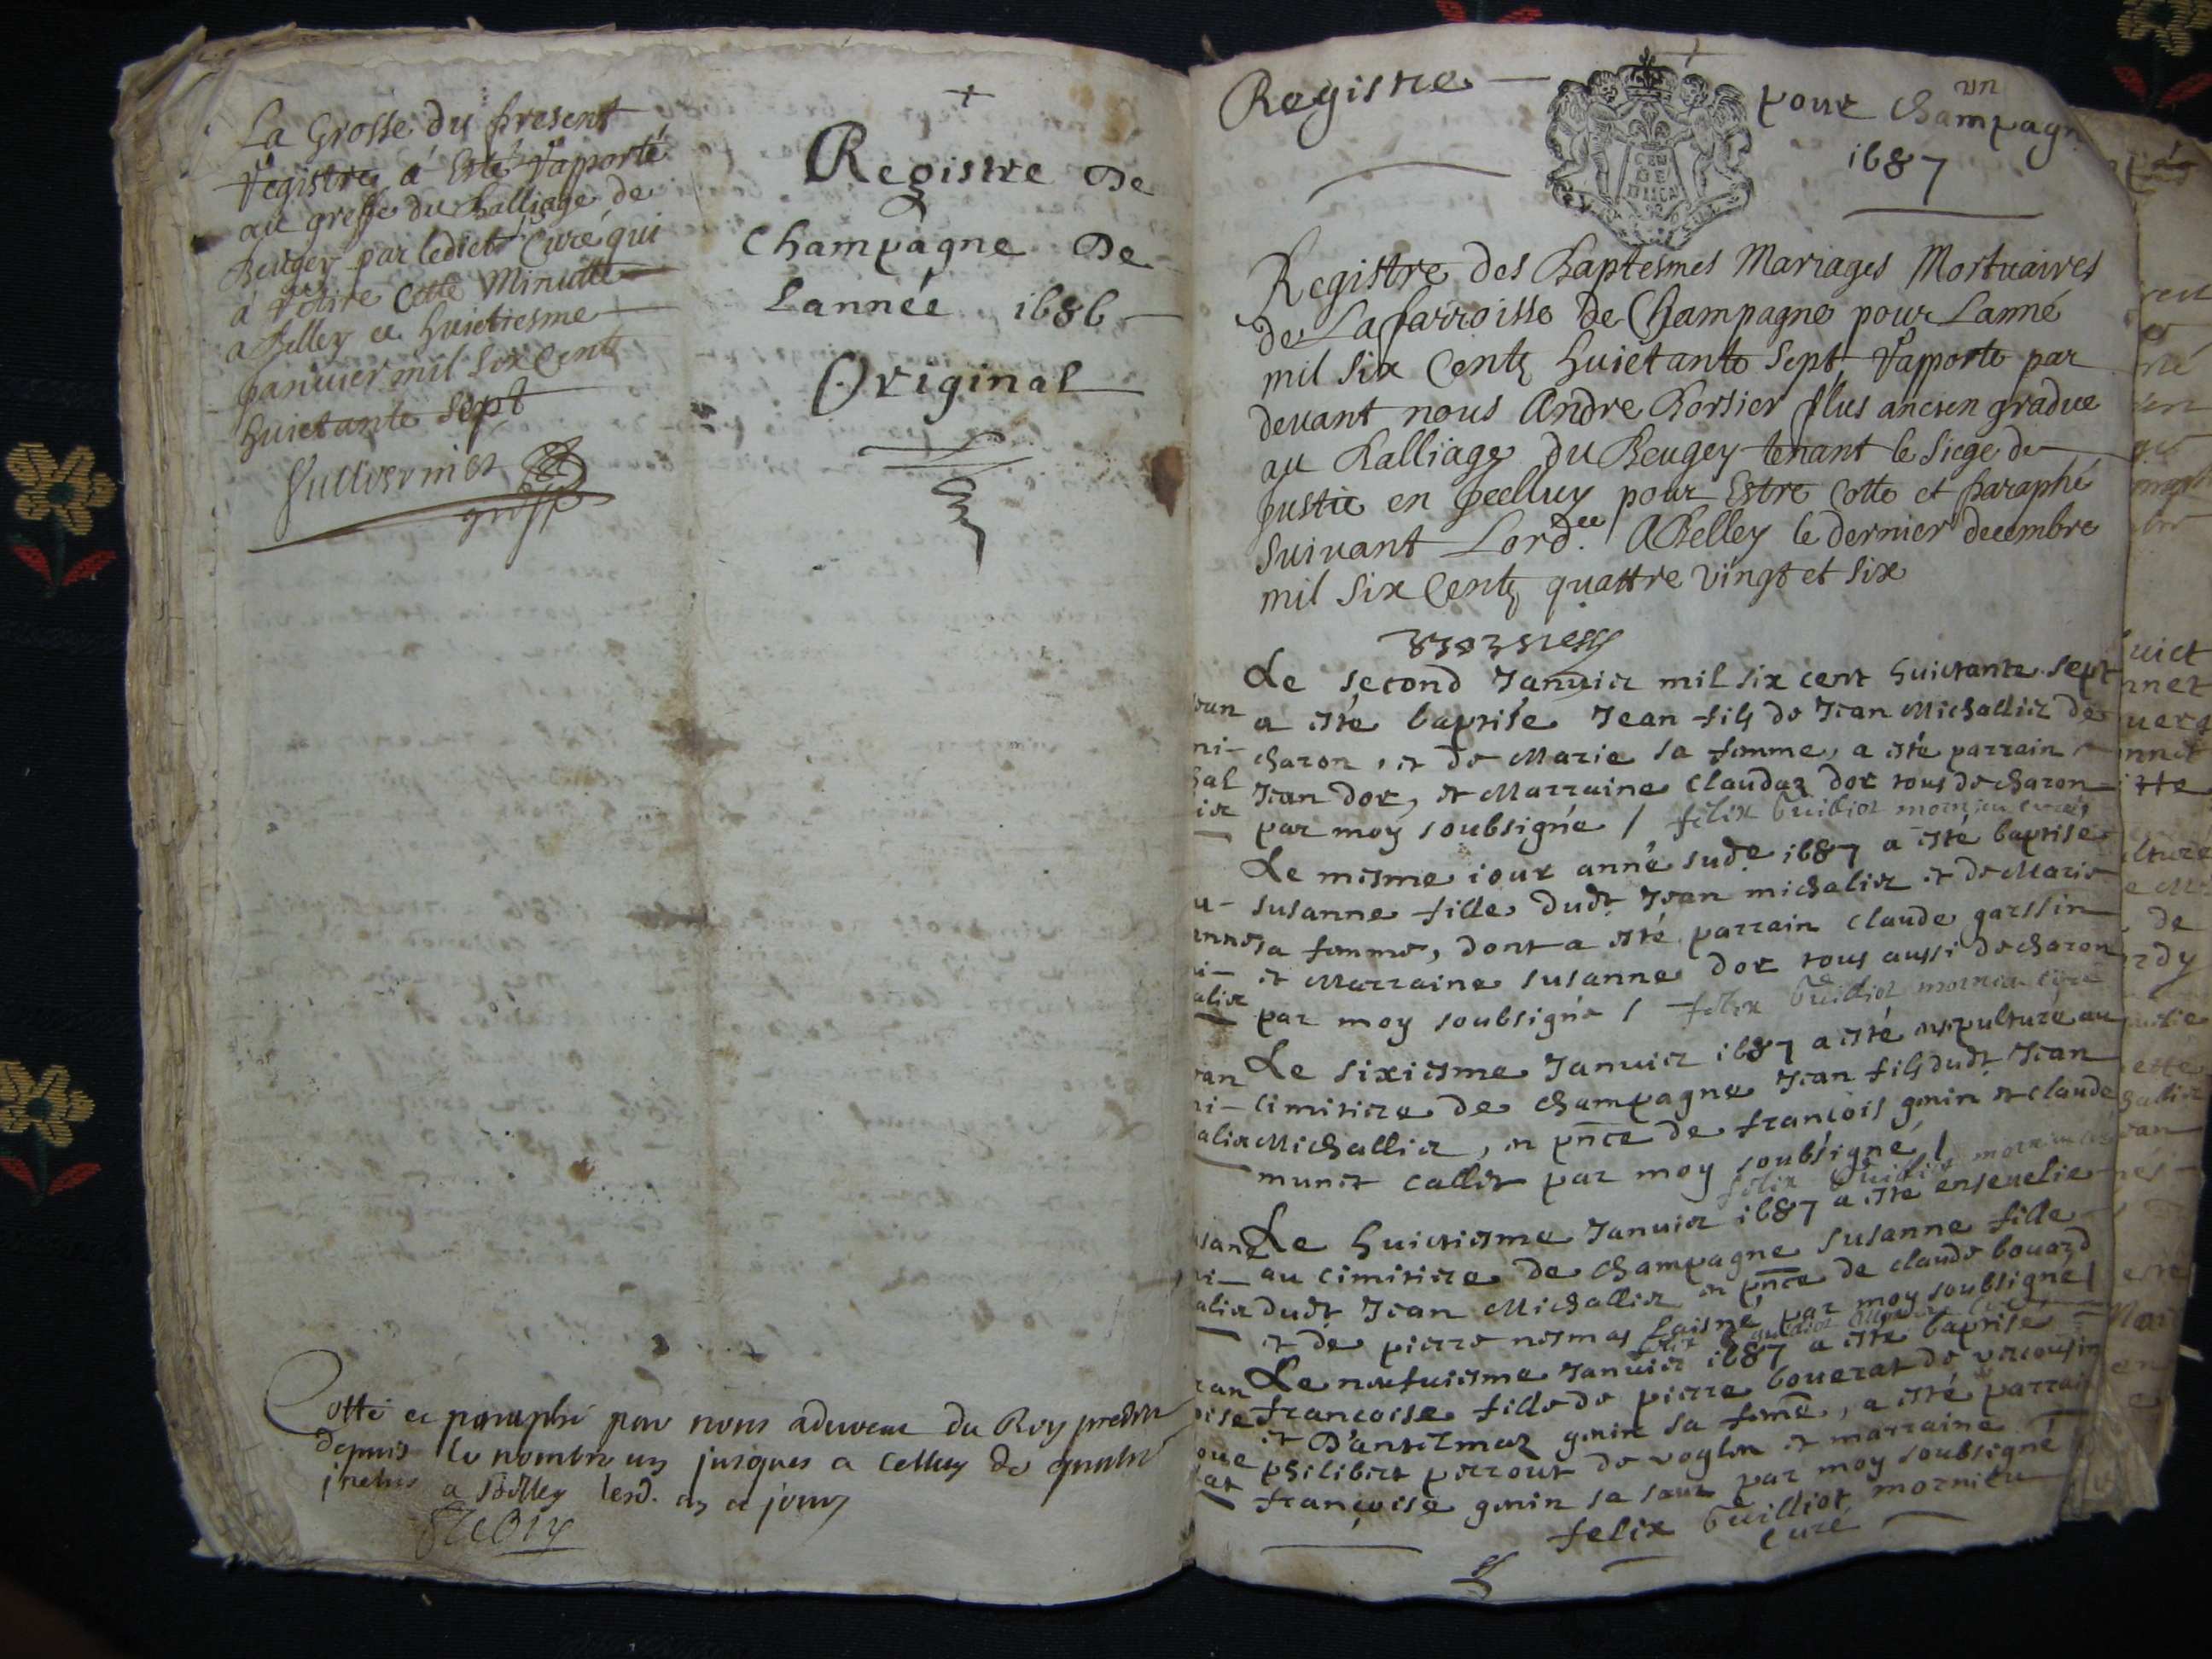 La Grosse du present
Registre a Esté Rapporté
au greffe du Balliage de
Beugey par ledict Curé qui
a Retiré Cette Minutte
a Belley ce huictiesme
Januier mil six Centz
huictante sept
greff
Registre De
Champagne De
Lannée 1686
Original
Cotté et paraphé par nous aduocat du Roy
depuis le nombre un jusques a Celluy de quatre
inclus a Belley lesd. an et jour
Registre
un
pour Champagn
1687
Registre des Baptesmes Mariages Mortuaires
de La parroisse de Champagne pour Lanné
mil six Centz huictante sept, Rapporte par
deuant nous Andre Borsier plus ancien gradue
au Balliage du Beugey tenant le siege de
Justice en Jcelluy pour Estre Cotte et paraphé
suiuant Lord.ce A Belley le dernier decembre
mil six Centz quattre vingt et six
Le second Januier mil six cent huictante sept
a esté baptisé Jean fils de Jean Michallier de
charon, et de Marie sa femme, a esté parrain
Jean dor, et Marraine Claudaz dor tous de charon
par moy soubsigné / felix Guilliot mornieu curé
Le mesme iour année sude 1687 a esté baptise
susanne fille dudt Jean michalier et de Marie
sa femme, dont a esté parrain claude garssin
et Marraine susanne dor tous aussi de charon
par moy soubsigné / felix Guilliot mornieu curé
Le sixiesme Januier 1687 a esté ensepulturé au
cimitiere de champagne Jean fils dudt Jean
Michallier, en pnce de francois genin et claude
munet callet par moy soubsigné /
felix Guilliot mornieu curé
Le huictiesme Januier 1687 a esté enseuelie
au cimitiere de champagne susanne fille
dudt Jean Michallier en pnce de claude bouard
et de pierre nesmas laisné par moy soubsigné /
Le neufuiesme Januier 1687 a esté baptise
francoise fille de pierre bouerat de vercousin
et D'antelmaz genin sa feme, a esté parrain
philibert perrout de voglen et marraine
françoise genin sa sœur par moy soubsigné
felix Guilliot mornieu
curé